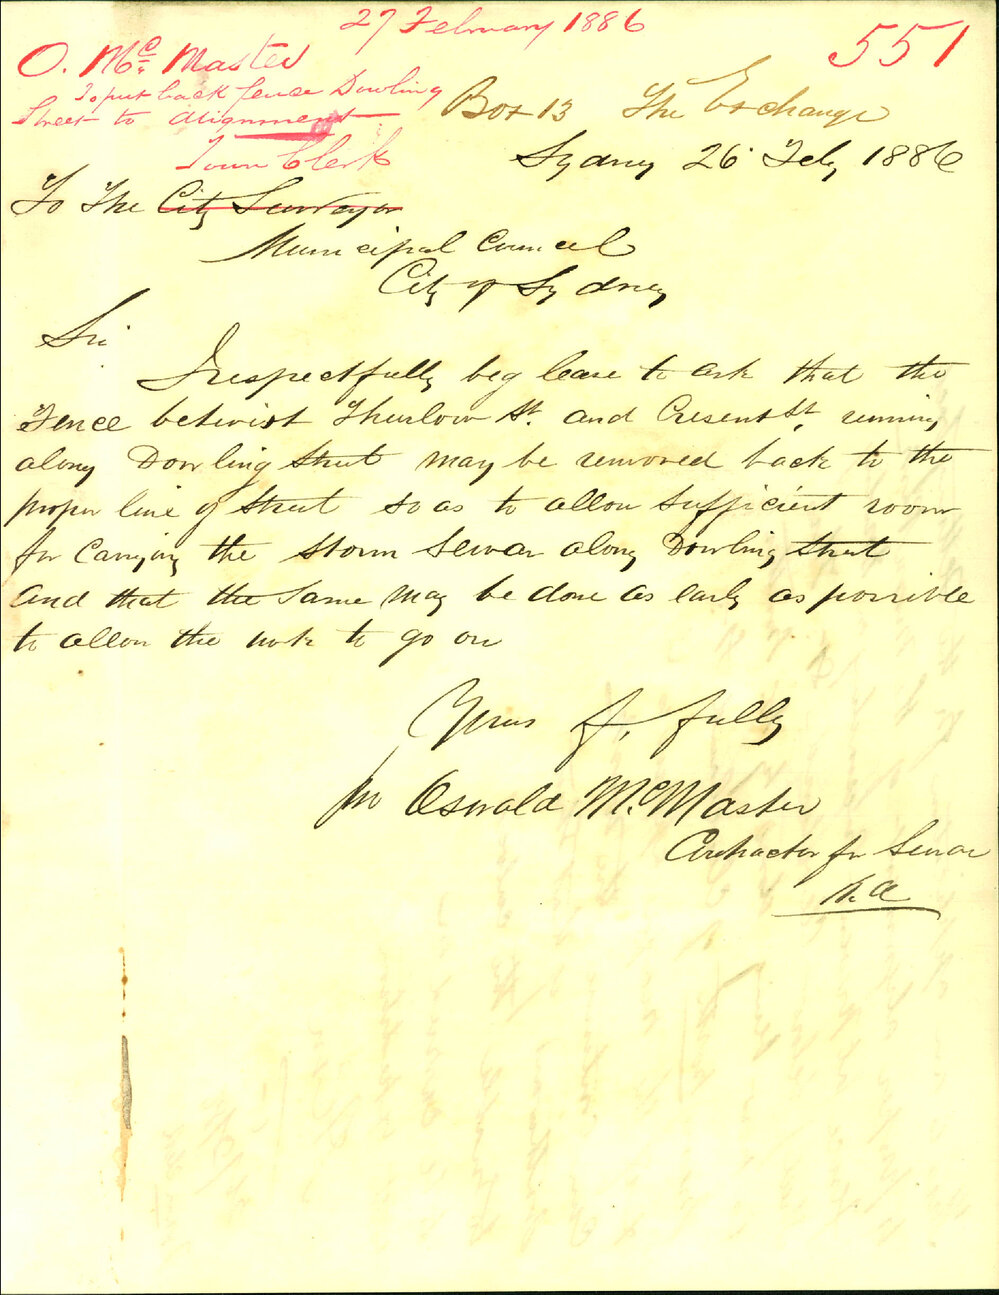 27 February 1886
551
O. McMaster
To put back fence Dowling
Street to Alignment
Town Clerk
Box 13 The Exchange
Sydney 26 Feby 1886
To The City Surveyor
Municipal Council
City of Sydney
Sir
I respectfully beg leave to ask that the
Fence betwixt Thurlow St. and Cresent St. running
along Dowling Street may be removed back to the
proper line of Street so as to allow sufficient room
for Carrying the Storm Sewar along Dowling Street
and that the same may be done as early as possible
to allow the work to go on
Yours f. fully
pro Oswald McMaster
Contractor for Sewar